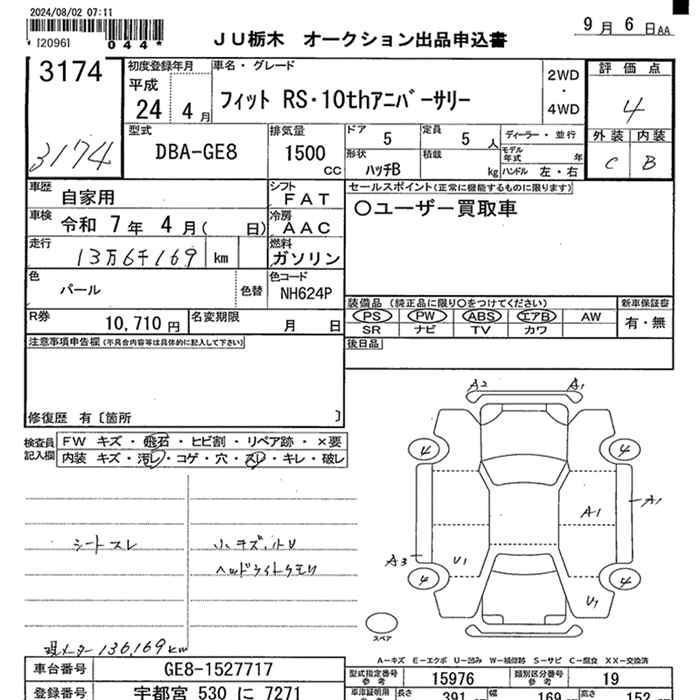 2024/08/02 07:11
* I20961 044*
JU栃木 オークション出品申込書
9月 6日AA
3174
3174
初度登録年月
平成
24 4月
車名・グレード
フィット RS・10thアニバーサリー
2WD
・
4WD
評価点
4
外装 内装
C B
型式
DBA-GE8
排気量
1500
CC
ドア 5
定員 5人
ディーラー・並行
形状
ハッチB
積載 kg
モデル年式 年
ハンドル 左・右
車歴 自家用
シフト FAT
セールスポイント(正常に機能するものに限ります)
〇ユーザー買取車
車検 令和 7年 4月( 日)
冷房 AAC
走行 13万6千169 km
燃料 ガソリン
色 パール 色替
色コード NH624P
装備品 (純正品に限り〇をつけてください)
PS PW ABS エアB AW
SR ナビ TV カワ
新車保証書
有・無
R券 10,710円
名変期限 月 日
後日品
注意事項申告欄(不具合内容等は具体的に記入して下さい)
修復歴 有〔箇所 〕
検査員記入欄
FW キズ・飛石・ヒビ割・リペア跡・×要
内装 キズ・汚レ・コゲ・穴・スレ・キレ・破レ
シートスレ
小キズ、トリ
ヘッドライトクモリ
現メーター 136,169km
A2 A1
4 4
A1 A1
A3 U1
4 4
U1
スペア
A-キズ E-エクボ U-凹み W-補修跡 S-サビ C-腐食 XX-交換済
車台番号 GE8-1527717
型式指定番号 参考 15976
類別区分番号 参考 19
登録番号 宇都宮 530 に 7271
車庫証明用 参考 長さ 391 幅 169 高さ 152